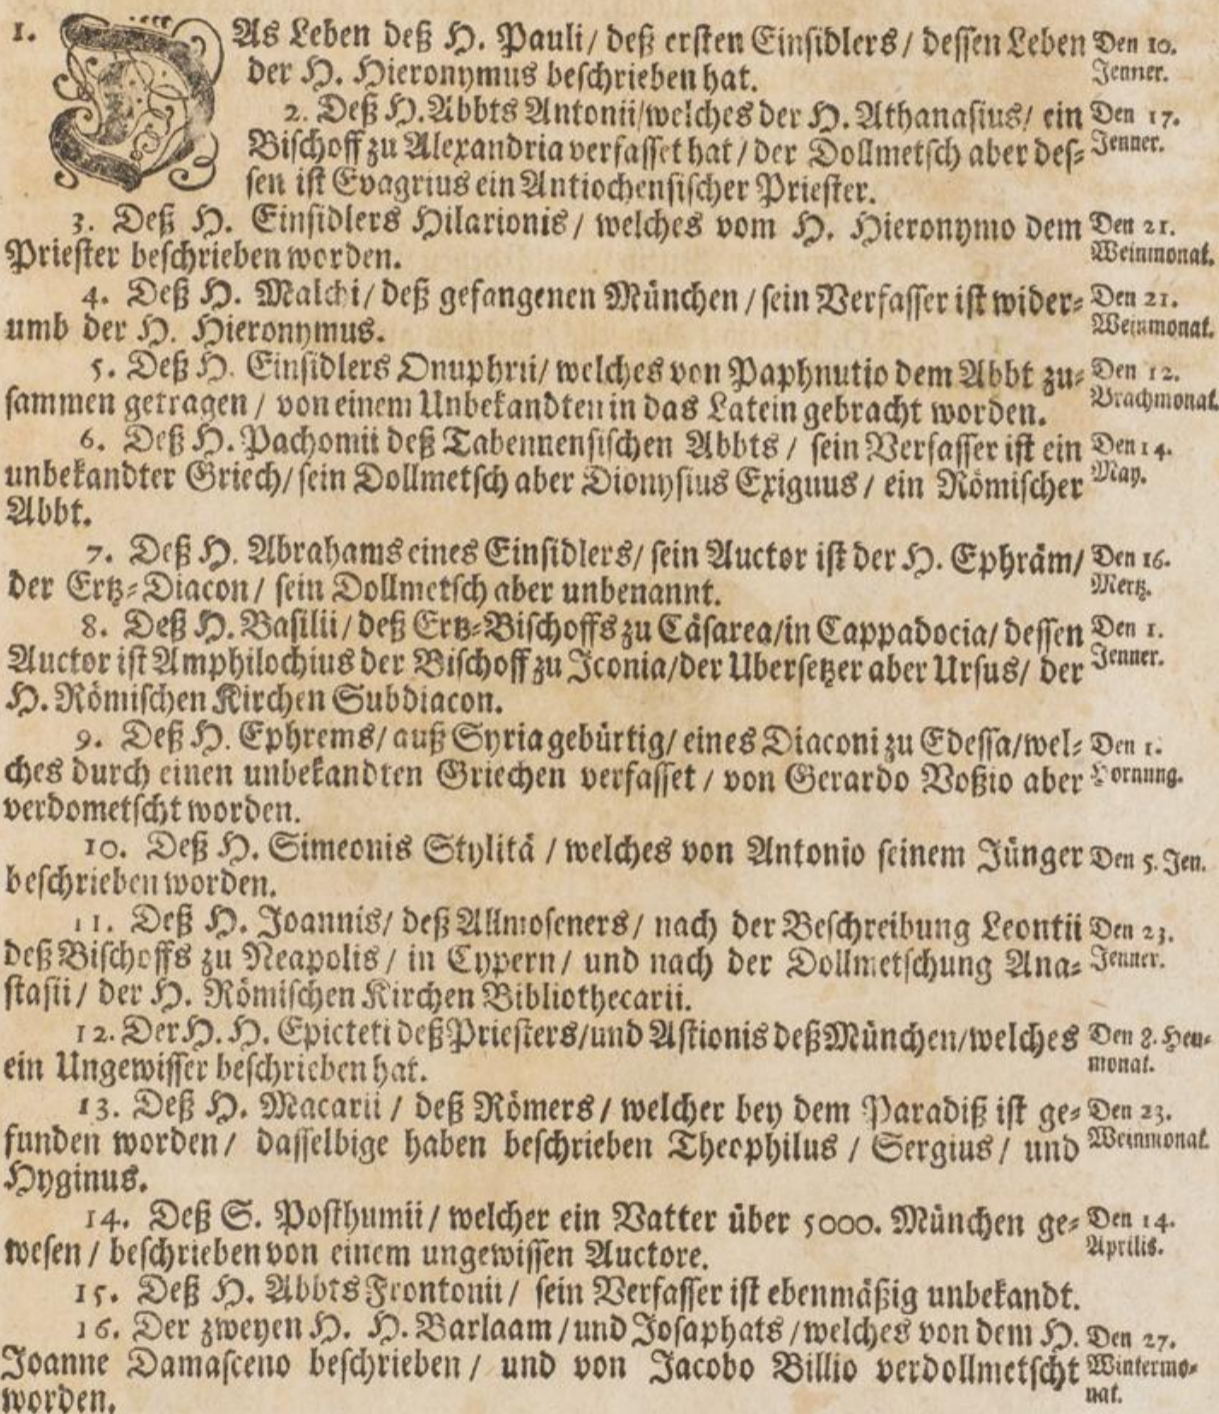 1. DAs Leben deß H. Pauli/ deß ersten Einsidlers/ dessen Leben Den 10.
der H. Hieronymus beschrieben hat. Jenner.
2. Deß H. Abbts Antonii/welches der H. Athanasius/ ein Den 17.
Bischoff zu Alexandria verfasset hat/ der Dollmetsch aber des- Jenner.
sen ist Evagrius ein Antiochensischer Priester.
3. Deß H. Einsidlers Hilarionis/ welches vom H. Hieronymo dem Den 21.
Priester beschrieben worden. Weinmonat.
4. Deß H. Malchi/ deß gefangenen München/ sein Verfasser ist wider- Den 21.
umb der H. Hieronymus. Weinmonat.
5. Deß H. Einsidlers Onuphrii/ welches von Paphnutio dem Abbt zu- Den 12.
sammen getragen/ von einem Unbekandten in das Latein gebracht worden. Brachmonat.
6. Deß H. Pachomii deß Tabennensischen Abbts/ sein Verfasser ist ein Den 14.
unbekandter Griech/ sein Dollmetsch aber Dionysius Exiguus/ ein Römischer May.
Abbt.
7. Deß H. Abrahams eines Einsidlers/ sein Auctor ist der H. Ephräm/ Den 16.
der Ertz-Diacon/ sein Dollmetsch aber unbenannt. Mertz.
8. Deß H. Basilii/ deß Ertz-Bischoffs zu Cäsarea/in Cappadocia/ dessen Den 1.
Auctor ist Amphilochius der Bischoff zu Iconia/der Ubersetzer aber Ursus/ der Jenner.
H. Römischen Kirchen Subdiacon.
9. Deß H. Ephrems/ auß Syria gebürtig/ eines Diaconi zu Edessa/wel- Den 1.
ches durch einen unbekandten Griechen verfasset/ von Gerardo Voßio aber Hornung.
verdometscht worden.
10. Deß H. Simeonis Stylitä/ welches von Antonio seinem Jünger Den 5. Jen.
beschrieben worden.
11. Deß H. Joannis/ deß Allmoseners/ nach der Beschreibung Leontii Den 23.
deß Bischoffs zu Neapolis/ in Cypern/ und nach der Dollmetschung Ana- Jenner.
stasii/ der H. Römischen Kirchen Bibliothecarii.
12. Der H. H. Epicteti deß Priesters/und Astionis deß München/welches Den 8. Heu-
ein Ungewisser beschrieben hat. monat.
13. Deß H. Macarii/ deß Römers/ welcher bey dem Paradiß ist ge- Den 23.
funden worden/ dasselbige haben beschrieben Theophilus/ Sergius/ und Weinmonat.
Hyginus.
14. Deß S. Posthumii/ welcher ein Vatter über 5000. München ge- Den 14.
wesen/ beschrieben von einem ungewissen Auctore. Aprilis.
15. Deß H. Abbts Frontonii/ sein Verfasser ist ebenmäßig unbekandt.
16. Der zweyen H. H. Barlaam/und Josaphats/welches von dem H. Den 27.
Joanne Damasceno beschrieben/ und von Jacobo Billio verdollmetscht Wintermo-
worden. nat.